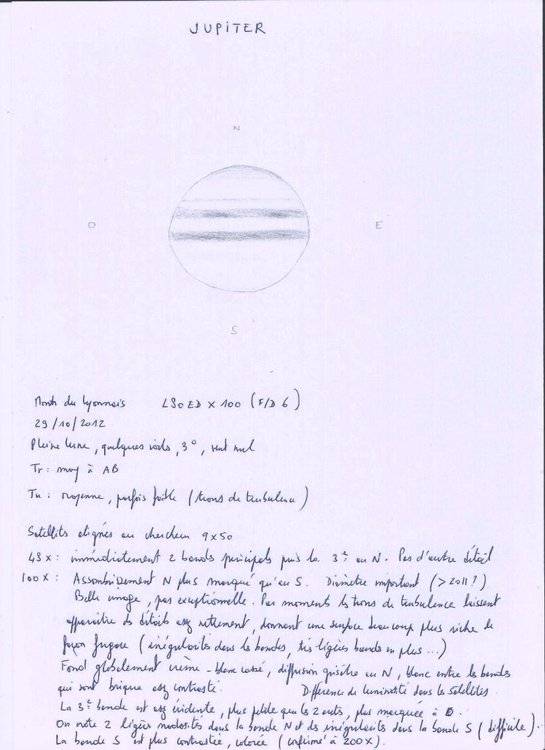 JUPITER
N
O E
S
Monts du Lyonnais L90 ED x 100 (F/D 6)
29/10/2012
Pleine lune, quelques voiles, 3°, vent nul
Tr: moy à AB
Tu: moyenne, parfois faible (trous de turbulence)
Satellites alignés au chercheur 9x50
43x: immédiatement 2 bandes principales puis la 3è au N. Pas d'autre détail
100x: Assombrissement N plus marqué qu'au S. Diamètre important (> 2011?)
Belle image, pas exceptionnelle. Par moments les trous de turbulence laissent
apparaître des détails assez nettement, donnant une surface beaucoup plus riche de
façon fugace (irrégularités dans les bandes, très légères bandes en plus...)
Fond globalement crème - blanc cassé, diffusion grisâtre au N, blanc entre les bandes
qui sont brique assez contrasté. Différence de luminosité dans les satellites.
La 3è bande est assez évidente, plus pâle que les 2 autres, plus marquée à O.
On note 2 légères nodosités dans la bande N et des irrégularités dans la bande S (difficile).
La bande S est plus contrastée, colorée (confirmé à 200x).